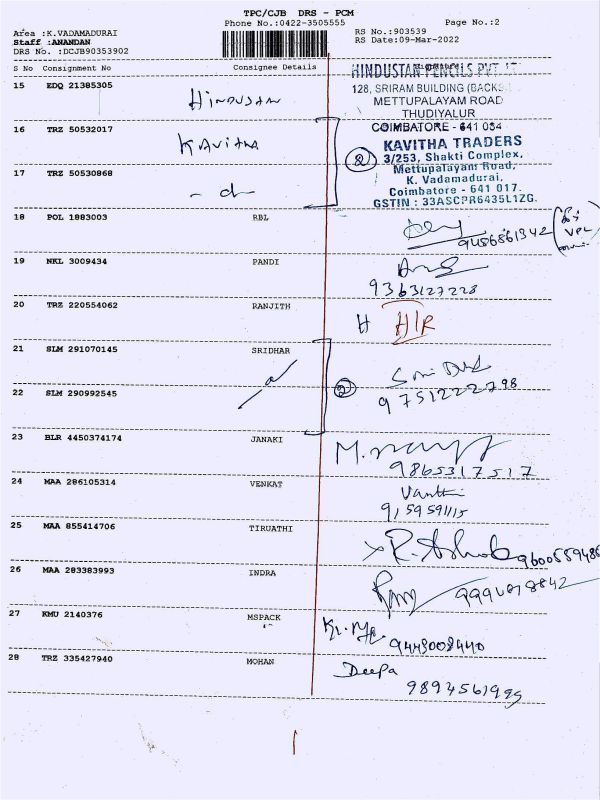 TPC/CJB DRS - PCM
Phone No.:0422-3505555 Page No.:2
Area :K.VADAMADURAI RS No.:903539
Staff :ANANDAN RS Date:09-Mar-2022
DRS No. :DCJB90353902
S No Consignment No Consignee Details Signature
15 EDQ 21385305 HINDUSTAN PENCILS PVT
Hindustan 128, SRIRAM BUILDING (BACKS
METTUPALAYAM ROAD
THUDIYALUR
16 TRZ 50532017 COIMBATORE - 641 034
Kavitha KAVITHA TRADERS
② 3/253, Shakti Complex,
Mettupalayam Road,
17 TRZ 50530868 K. Vadamadurai,
- d - Coimbatore - 641 017.
GSTIN : 33ASCPR6435L1ZG.
18 POL 1883003 RBL
9486861342
19 NKL 3009434 PANDI
9363127228
20 TRZ 220554062 RANJITH
H H/R
21 SLM 291070145 SRIDHAR
②
22 SLM 290992545
9751222798
23 BLR 4450374174 JANAKI
9865317517
24 MAA 286105314 VENKAT
9159591115
25 MAA 855414706 TIRUATHI
R. Ashok
26 MAA 283383993 INDRA
27 KMU 2140376 MSPACK
9443008440
28 TRZ 335427940 MOHAN
Deepa